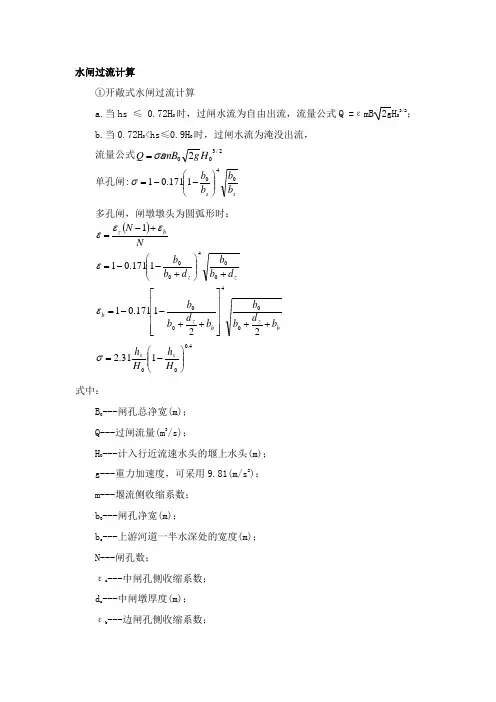 水闸过流计算
①开敞式水闸过流计算
a.当hs ≤ 0.72H₀时，过闸水流为自由出流，流量公式Q =εmB√2gH₀^{3/2}；
b.当0.72H₀<hs≤0.9H₀时，过闸水流为淹没出流，
流量公式Q=σεmB₀√2g H₀^{3/2}
单孔闸:σ=1-0.171(1-b₀/b_s)⁴√(b₀/b_s)
多孔闸，闸墩墩头为圆弧形时：
ε=(ε_z(N-1)+ε_b)/N
ε=1-0.171(1-b₀/(b₀+d_z))⁴√(b₀/(b₀+d_z))
ε_b=1-0.171[1-b₀/(b₀+d_z/2+b_b)]⁴√(b₀/(b₀+d_z/2+b_b))
σ=2.31 h_s/H₀(1-h_s/H₀)^{0.4}
式中：
B₀---闸孔总净宽(m)；
Q---过闸流量(m³/s)；
H₀---计入行近流速水头的堰上水头(m)；
g---重力加速度，可采用9.81(m/s²)；
m---堰流侧收缩系数；
b₀---闸孔净宽(m)；
b_s---上游河道一半水深处的宽度(m)；
N---闸孔数；
ε_z---中闸孔侧收缩系数；
d_z---中闸墩厚度(m)；
ε_b---边闸孔侧收缩系数；